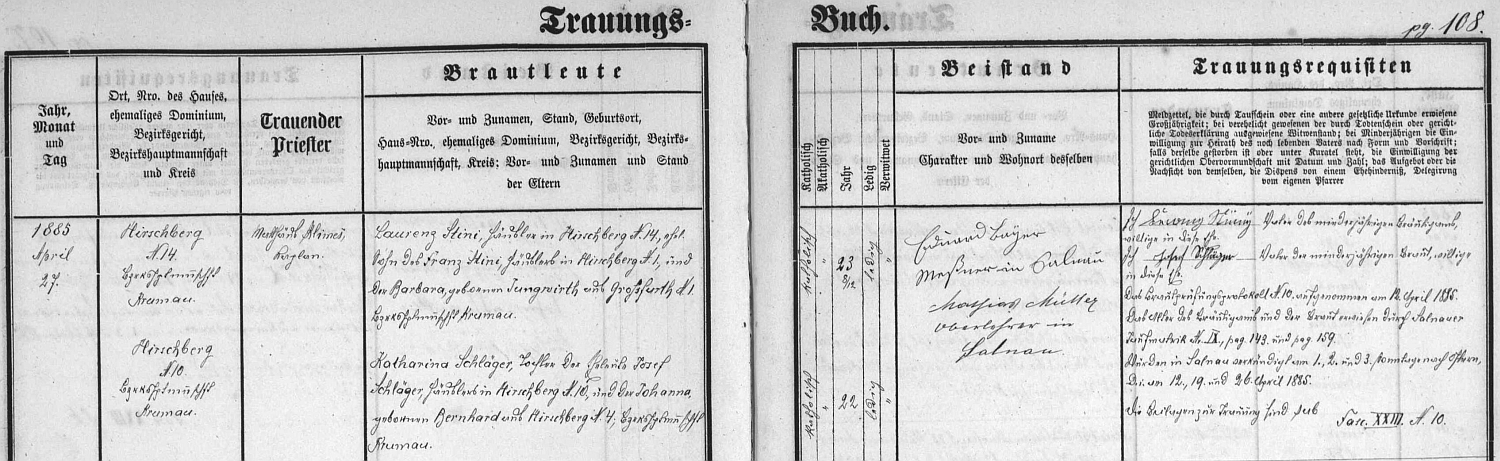 Trauungs=
Buch.
pg. 108.
Jahr,
Monat
und
Tag
Ort, Nro. des Hauses,
ehemaliges Dominium,
Bezirksgericht,
Bezirkshauptmannschaft
und Kreis
Trauender
Priester
Brautleute
Vor- und Zunamen, Stand, Geburtsort,
Haus-Nro., ehemaliges Dominium, Bezirksgericht, Bezirks-
hauptmannschaft, Kreis; Vor- und Zunamen und Stand
der Eltern
Katholisch
Akatholisch
Jahr
Ledig
Verwitwet
Beistand
Vor- und Zuname
Charakter und Wohnort desselben
Trauungsrequisiten
Meldzettel, die durch Taufschein oder eine andere gesetzliche Urkunde erwiesene
Großjährigkeit; bei verehelicht gewesenen der durch Todtenschein oder gericht-
liche Todeserklärung ausgewiesene Witwenstand; bei Minderjährigen die Ein-
willigung zur Heirath des noch lebenden Vaters nach Form und Vorschrift;
falls derselbe gestorben ist oder unter Kuratel steht, die Einwilligung der
gerichtlichen Obervormundschaft mit Datum und Zahl; das Aufgebot oder die
Nachsicht von demselben, die Dispens von einem Ehehinderniß, Delegirung
vom eigenen Pfarrer
1885
April
27.
Hirschberg
N. 14.
Bezirkshptmschft
Krumau.
Hirschberg
N. 10.
Bezirkshptmschft
Krumau.
Matthäus Klimeš,
Kaplan.
Laurenz Stini, Häusler in Hirschberg N. 14, ehel.
Sohn des Franz Stini, Häuslers in Hirschberg N. 1, und
der Barbara, gebornen Jungwirth aus Großfurth N. 1.
Bezirkshptmschft Krumau.
Katharina Schläger, Tochter des Josef
Schläger, Häuslers in Hirschberg N. 10, und der Johanna,
gebornen Bernhard aus Hirschberg N. 4, Bezirkshptmschft
Krumau.
katholisch
"
23
8/12
ledig
"
katholisch
"
22
ledig
"
Eduard Bayer
Meßner in Salnau
Mathias Müller
Oberlehrer in
Salnau.
Ich Franz Stini Vater des minderjährigen Bräutigams,
willige in diese Ehe.
Ich Josef Schläger Vater der minderjährigen Braut, willige
in diese Ehe.
Das Brautprüfungsprotokoll N. 10. aufgenommen am 12. April 1885.
Das Alter des Bräutigams und der Braut erwiesen durch Salnauer
Taufmatrik N. IX, pag. 143. und pag. 159.
Wurden in Salnau verkündigt am 1., 2. und 3. Sonntage nach Ostern,
d. i. am 12., 19. und 26. April 1885.
Die Beilagen zur Trauung sind sub
Fasc. XXIII. N. 10.